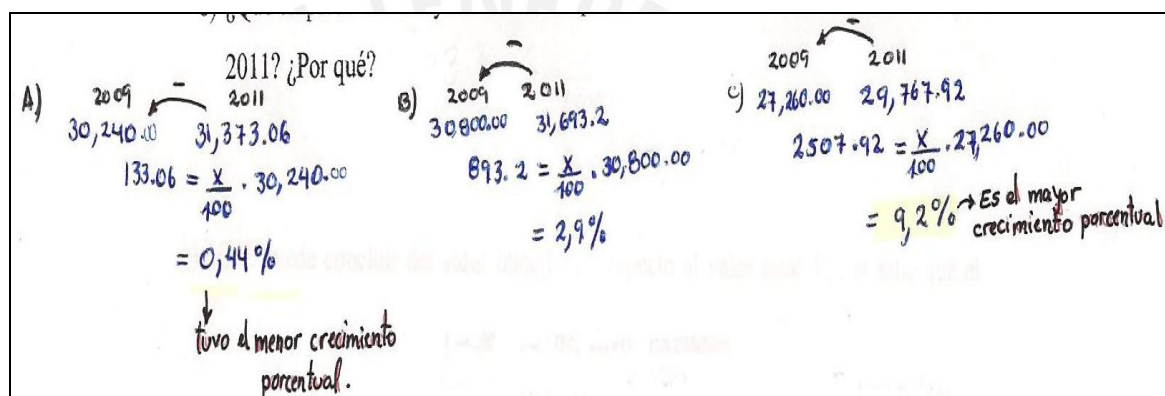 2011? ¿Por qué?
A) 2009 - 2011
30,240.00 31,373.06
133.06 = x/100 . 30,240.00
= 0,44%
tuvo el menor crecimiento
porcentual.
B) 2009 - 2011
30,800.00 31,693.2
893.2 = x/100 . 30,800.00
= 2,9%
c) 2009 - 2011
27,260.00 29,767.92
2507.92 = x/100 . 27,260.00
= 9,2% → Es el mayor
crecimiento porcentual